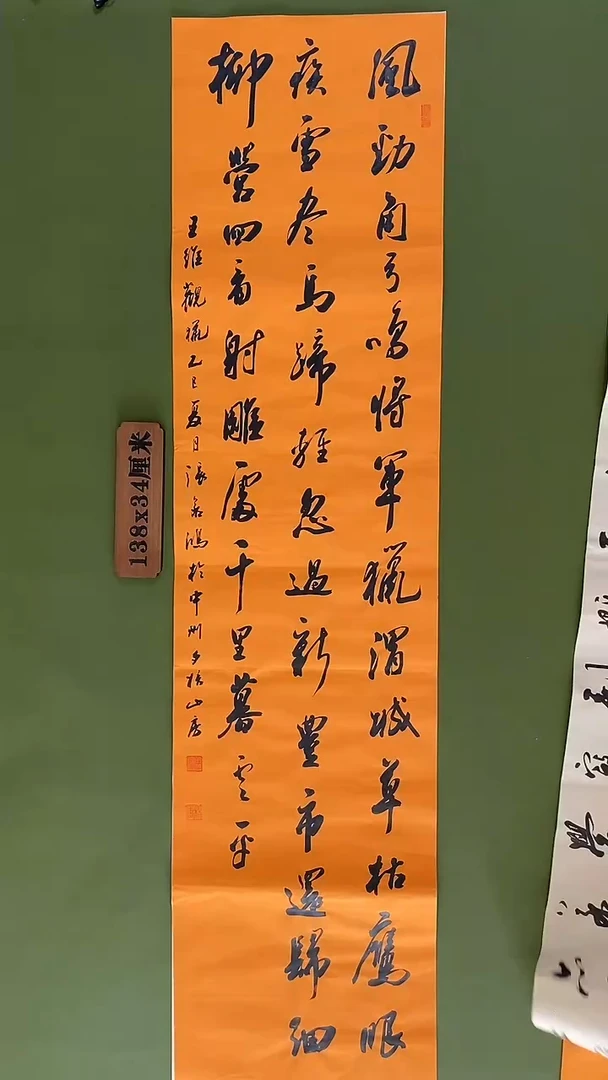 風勁角弓鳴將軍獵渭城草枯鷹眼
疾雪尽馬蹄輕忽過新豐市還歸細
柳營回看射雕處千里暮雲平
王維觀獵乙巳夏日張 鴻於中州夕拾山房
138x34厘米